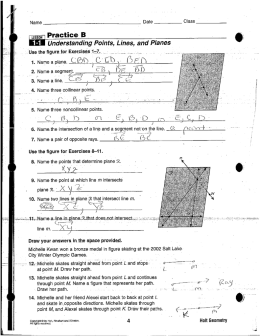 Name Date Class
LESSON Practice B
1-1 Understanding Points, Lines, and Planes
Use the figure for Exercises 1–7.
1. Name a plane.
2. Name a segment.
3. Name a line.
4. Name three collinear points.
C, B, E
5. Name three noncollinear points.
C, B, D or E, B, D, or E, C, D
6. Name the intersection of a line and a segment not on the line. a point
7. Name a pair of opposite rays.
Use the figure for Exercises 8–11.
8. Name the points that determine plane
xyz
9. Name the point at which line m intersects
plane
10. Name two lines in plane that intersect line m.
11. Name a line in plane that does not intersect
line m.
Draw your answers in the space provided.
Michelle Kwan won a bronze medal in figure skating at the 2002 Salt Lake
City Winter Olympic Games.
12. Michelle skates straight ahead from point L and stops
at point M. Draw her path.
13. Michelle skates straight ahead from point L and continues
through point M. Name a figure that represents her path.
Draw her path.
Ray
14. Michelle and her friend Alexei start back to back at point L
and skate in opposite directions. Michelle skates through
point M, and Alexei skates through point K. Draw their paths.
4 Holt Geometry